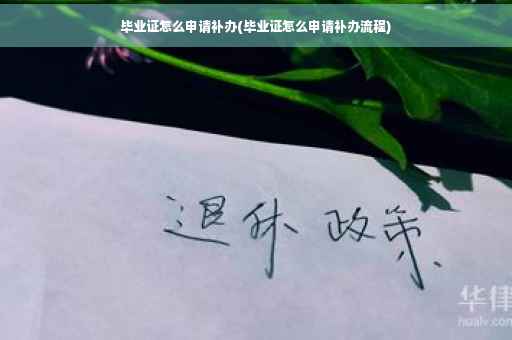 毕业证怎么申请补办(毕业证怎么申请补办流程)
退休 政策
华律
hualv.com